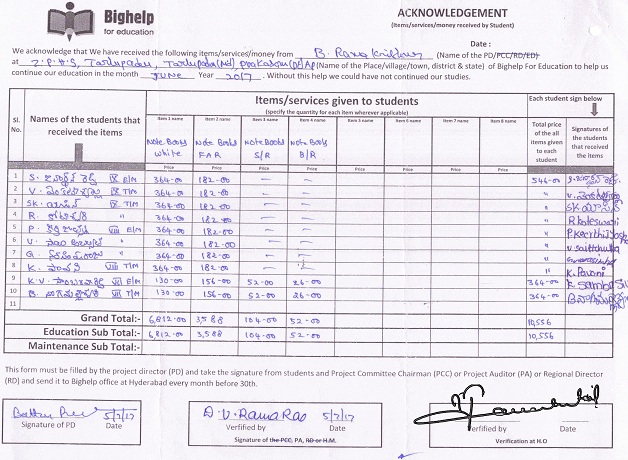 Bighelp
for education
ACKNOWLEDGEMENT
(Items/services/money received by Student)
Date :
We acknowledge that We have received the following items/services/money from B. Rama Krishna (Name of the PD/PCC/RD/ED)
at Z.P.H.S, Tarlupadu, Tarlupadu(Md), Prakasam(Dt) AP (Name of the Place/village/town, district & state) of Bighelp For Education to help us
continue our education in the month JUNE Year 2017. Without this help we could have not continued our studies.
Sl. No.
Names of the students that received the items
Items/services given to students
(Specify the quantity for each item wherever applicable)
Each student sign below
Item 1 name Item 2 name Item 3 name Item 4 name Item 5 name Item 6 name Item 7 name Item 8 name
Note Books White
Note Books FAR
Note Books S/R
Note Books B/R
Total price of the all items given to each student
Signatures of the students that received the items
Price Price Price Price Price Price Price Price
1 S. IX E/M 364-00 182-00 — — 546-00
2 V. IX T/M 364-00 182-00 — — "
3 SK. IX T/M 364-00 182-00 — — " SK
4 R. " 364-00 182-00 — — " R.koteswari
5 P. VIII E/M 364-00 182-00 — — " P.Keerthi
6 V. " 364-00 182-00 — — "
7 G. " 364-00 182-00 — — "
8 K. VIII T/M 364-00 182-00 — — " K. Pavani
9 K.V. VIII E/M 130-00 156-00 52-00 26-00 364-00
10 B. VIII T/M 130-00 156-00 52-00 26-00 364-00
11
Grand Total:- 6,812-00 3,588 104-00 52-00 10,556
Education Sub Total:- 6,812-00 3,588 104-00 52-00 10,556
Maintenance Sub Total:-
This form must be filled by the project director (PD) and take the signature from students and Project Committee Chairman (PCC) or Project Auditor (PA) or Regional Director
(RD) and send it to Bighelp office at Hyderabad every month before 30th.
5/7/17
Signature of PD Date
A.V. Rama Rao 5/7/17
Verified by Date
Signature of the PCC, PA, RD or H.M.
Verified by Date
Verification at H.O